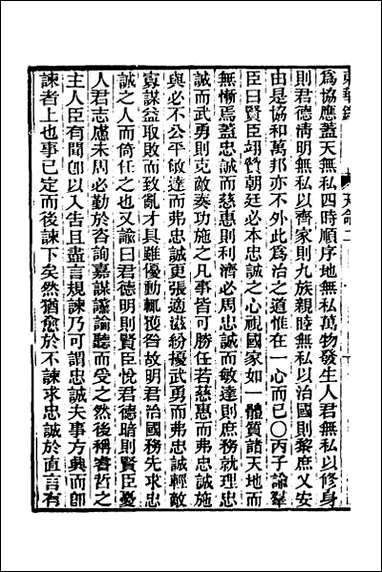 東華錄 天命二
為協應蓋天無私四時順序地無私萬物發生人君無私以修身
則君德清明無私以齊家則九族親睦無私以治國則黎庶乂安
由是協和萬邦亦不外此為治之道惟在一心而已〇丙子諭羣
臣曰賢臣翊贊朝廷必本忠誠之心視國家如一體質諸天地而
無慚焉蓋忠誠而慈惠則利濟必周忠誠而敏達則庶務就理忠
誠而武勇則克敵奏功施之凡事皆可勝任若慈惠而弗忠誠施
與必不公平敏達而弗忠誠更張適滋紛擾武勇而弗忠誠輕敵
寡謀益取敗而致亂才具雖優動輒獲咎故明君治國務先求忠
誠之人而倚任之也又諭曰君德明則賢臣悅君德暗則賢臣憂
人君志慮未周必勤於咨詢嘉謀讜論聽而受之然後稱睿哲之
主人臣有聞卽以入告且盡言規諫乃可謂忠誠夫事方興而卽
諫者上也事已定而後諫下矣然猶愈於不諫求忠誠於直言有